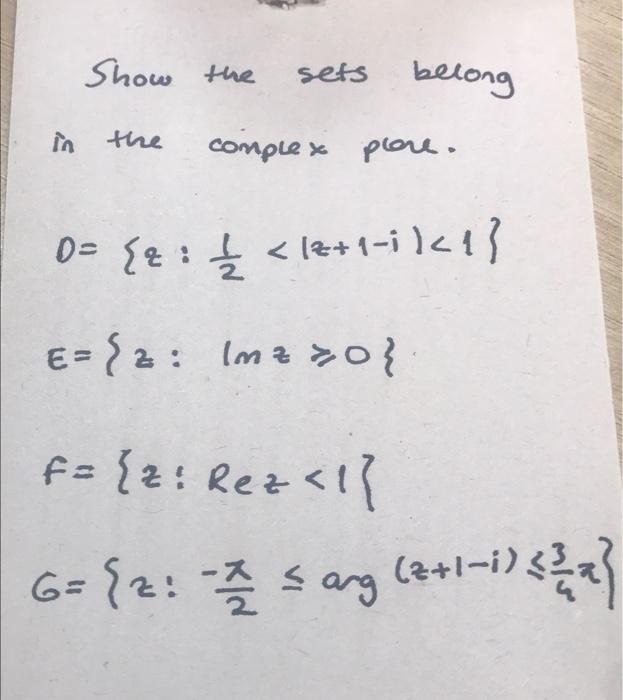 Show the sets belong
in the complex plane.
D= {z : 1/2 < |z+1-i|<1}
E={z : Im z ⩾0}
F= {z: Re z <1}
G= {z: -π/2 ≤ arg (z+1-i) ≤ 3/4 π}